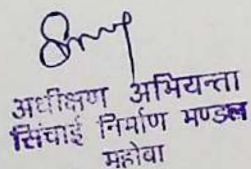 अधीक्षण अभियन्ता
सिंचाई निर्माण मण्डल
महोबा